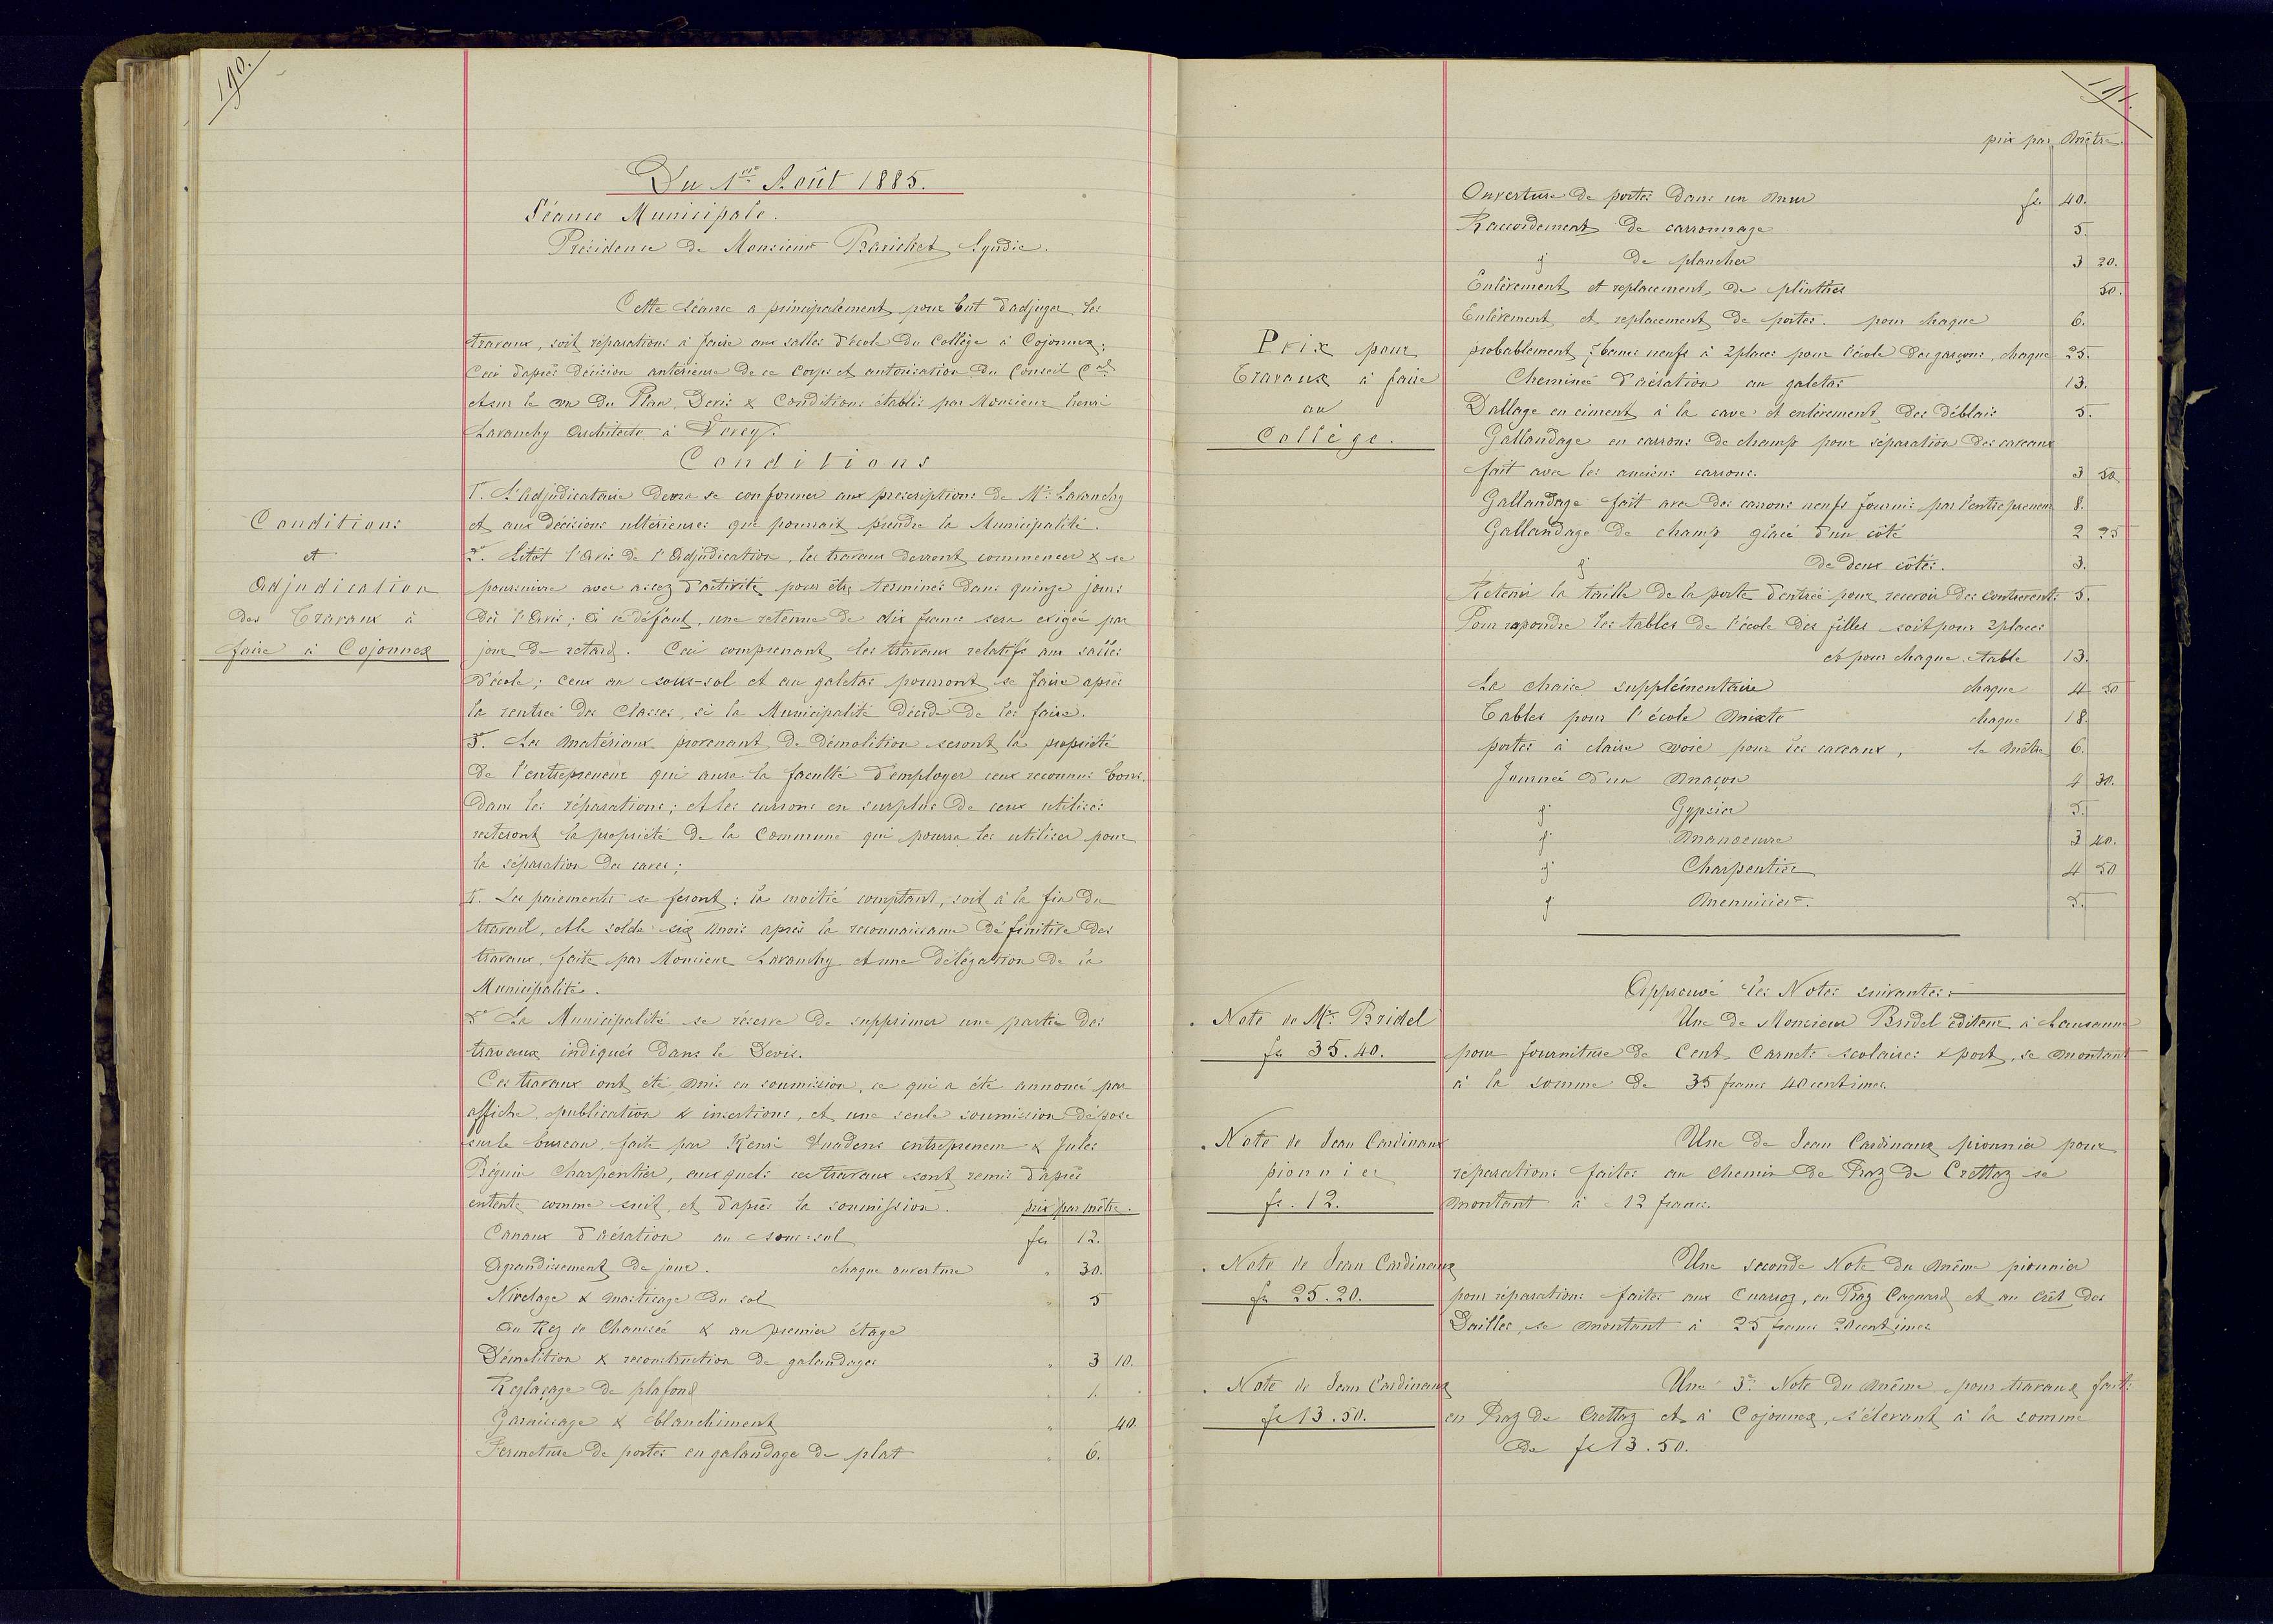 190.
Du 1er Août 1885.
Séance Municipale.
Présidence de Monsieur Barichet Syndic.
Cette séance a principalement pour but d'adjuger les
travaux, soit réparations à faire aux salles d'école du Collège à Cojonnex;
Ceci d'après décision antérieure de ce Corps et autorisation du Conseil Cal
et sur le vu du Plan, Devis & Conditions établis par Monsieur Henri
Lavanchy Architecte à Vevey.
Conditions
1o. L'Adjudicataire devra se conformer aux prescriptions de Mr. Lavanchy
et aux décisions ultérieures que pourrait prendre la Municipalité.
Conditions
et
Adjudication
des Travaux à
faire à Cojonnex
2o. Sitôt l'Avis de l'Adjudication, les travaux devront commencer & se
poursuivre avec assez d'activité pour être terminés dans quinze jours
dès l'Avis; à ce défaut, une retenue de dix francs sera exigée par
jour de retard. Ceci comprenant les travaux relatifs aux salles
d'école; ceux au sous-sol et au galetas pourront se faire après
la rentrée des Classes, si la Municipalité décide de les faire.
3o. Les matériaux provenant de démolition seront la propriété
de l'entrepreneur qui aura la faculté d'employer ceux reconnus bons
dans les réparations; et les carrons en surplus de ceux utilisés
resteront la propriété de la Commune qui pourra les utiliser pour
la séparation des caves;
4o. Les paiements se feront: la moitié comptant, soit à la fin du
travail, et le solde six mois après la reconnaissance définitive des
travaux, faite par Monsieur Lavanchy et une délégation de la
Municipalité.
5o La Municipalité se réserve de supprimer une partie des
travaux indiqués dans le Devis.
Ces travaux ont été mis en soumission, ce qui a été annoncé par
affiche, publication & insertions, et une seule soumission déposée
sur le bureau, faite par Henri entrepreneur & Jules
Béguin Charpentier, auxquels ces travaux sont remis d'après
entente comme suit, et d'après la soumission. prix par mètre.
Canaux d'aération au sous-sol fr 12.
Agrandissement de jour. chaque ouverture " 30.
Nivelage & masticage du sol " 5
Au Rez de Chaussée & au premier étage
Démolition & reconstruction de galandages " 3 10.
Reglaçage de plafond " 1.
Garnissage & blanchiment " 40.
Fermeture de portes en galandage de plat " 6.
191.
prix par Mètre.
Ouverture de portes dans un mur fr 40.
Raccordement de carronnage 5.
j de plancher 3 20.
Enlèvement et replacement de plinthes 50.
Enlèvement et replacement de portes. pour chaque 6.
Prix pour
Travaux à faire
au
Collège.
probablement 5 bancs neufs à 2 places pour l'école des garçons, chaque 25.
Cheminée d'aération au galetas 13.
Dallage en ciment à la cave et enlèvement des déblais 5.
Gallandage en carrons de champ pour séparation des caveaux
fait avec les anciens carrons. 3 50
Gallandage fait avec des carrons neufs fournis par l'entrepreneur 8.
Gallandage de champ glacé d'un côté 2 25
j de deux côtés. 3.
Retenir la taille de la porte d'entrée pour recevoir des contrevents 5.
Pour repondre les tables de l'école des filles soit pour 2 places
et pour chaque table 13.
La chaise supplémentaire chaque 4 50
Tables pour l'école mixte chaque 18.
portes à claire voie pour les caveaux, le mètre 6.
Journée d'un Maçon 4 30.
j Gypsier 5.
j Manoeuvre 3 40.
j Charpentier 4 50
j Menuisier. 5.
Approuvé les Notes suivantes:
Note de Mr. Bridel
fr 35.40.
Une de Monsieur Bridel éditeur à Lausanne
pour fourniture de Cent Carnets scolaires & port, se montant
à la somme de 35 francs 40 centimes.
Note de Jean Cardinaux
pionnier
fr. 12.
Une de Jean Cardinaux pionnier pour
réparations faites au Chemin de Praz de Crettaz se
montant à 12 francs.
Note de Jean Cardinaux
fr 25.20.
Une seconde Note du même pionnier
pour réparations faites aux Cuarroz, en Praz Cagnard et au Crêt des
Dailles, se montant à 25 francs 20 centimes
Note de Jean Cardinaux
fr 13.50.
Une 3e. Note du même, pour travaux faits
en Praz de Crettaz et à Cojonnex, s'élevant à la somme
de fr 13.50.